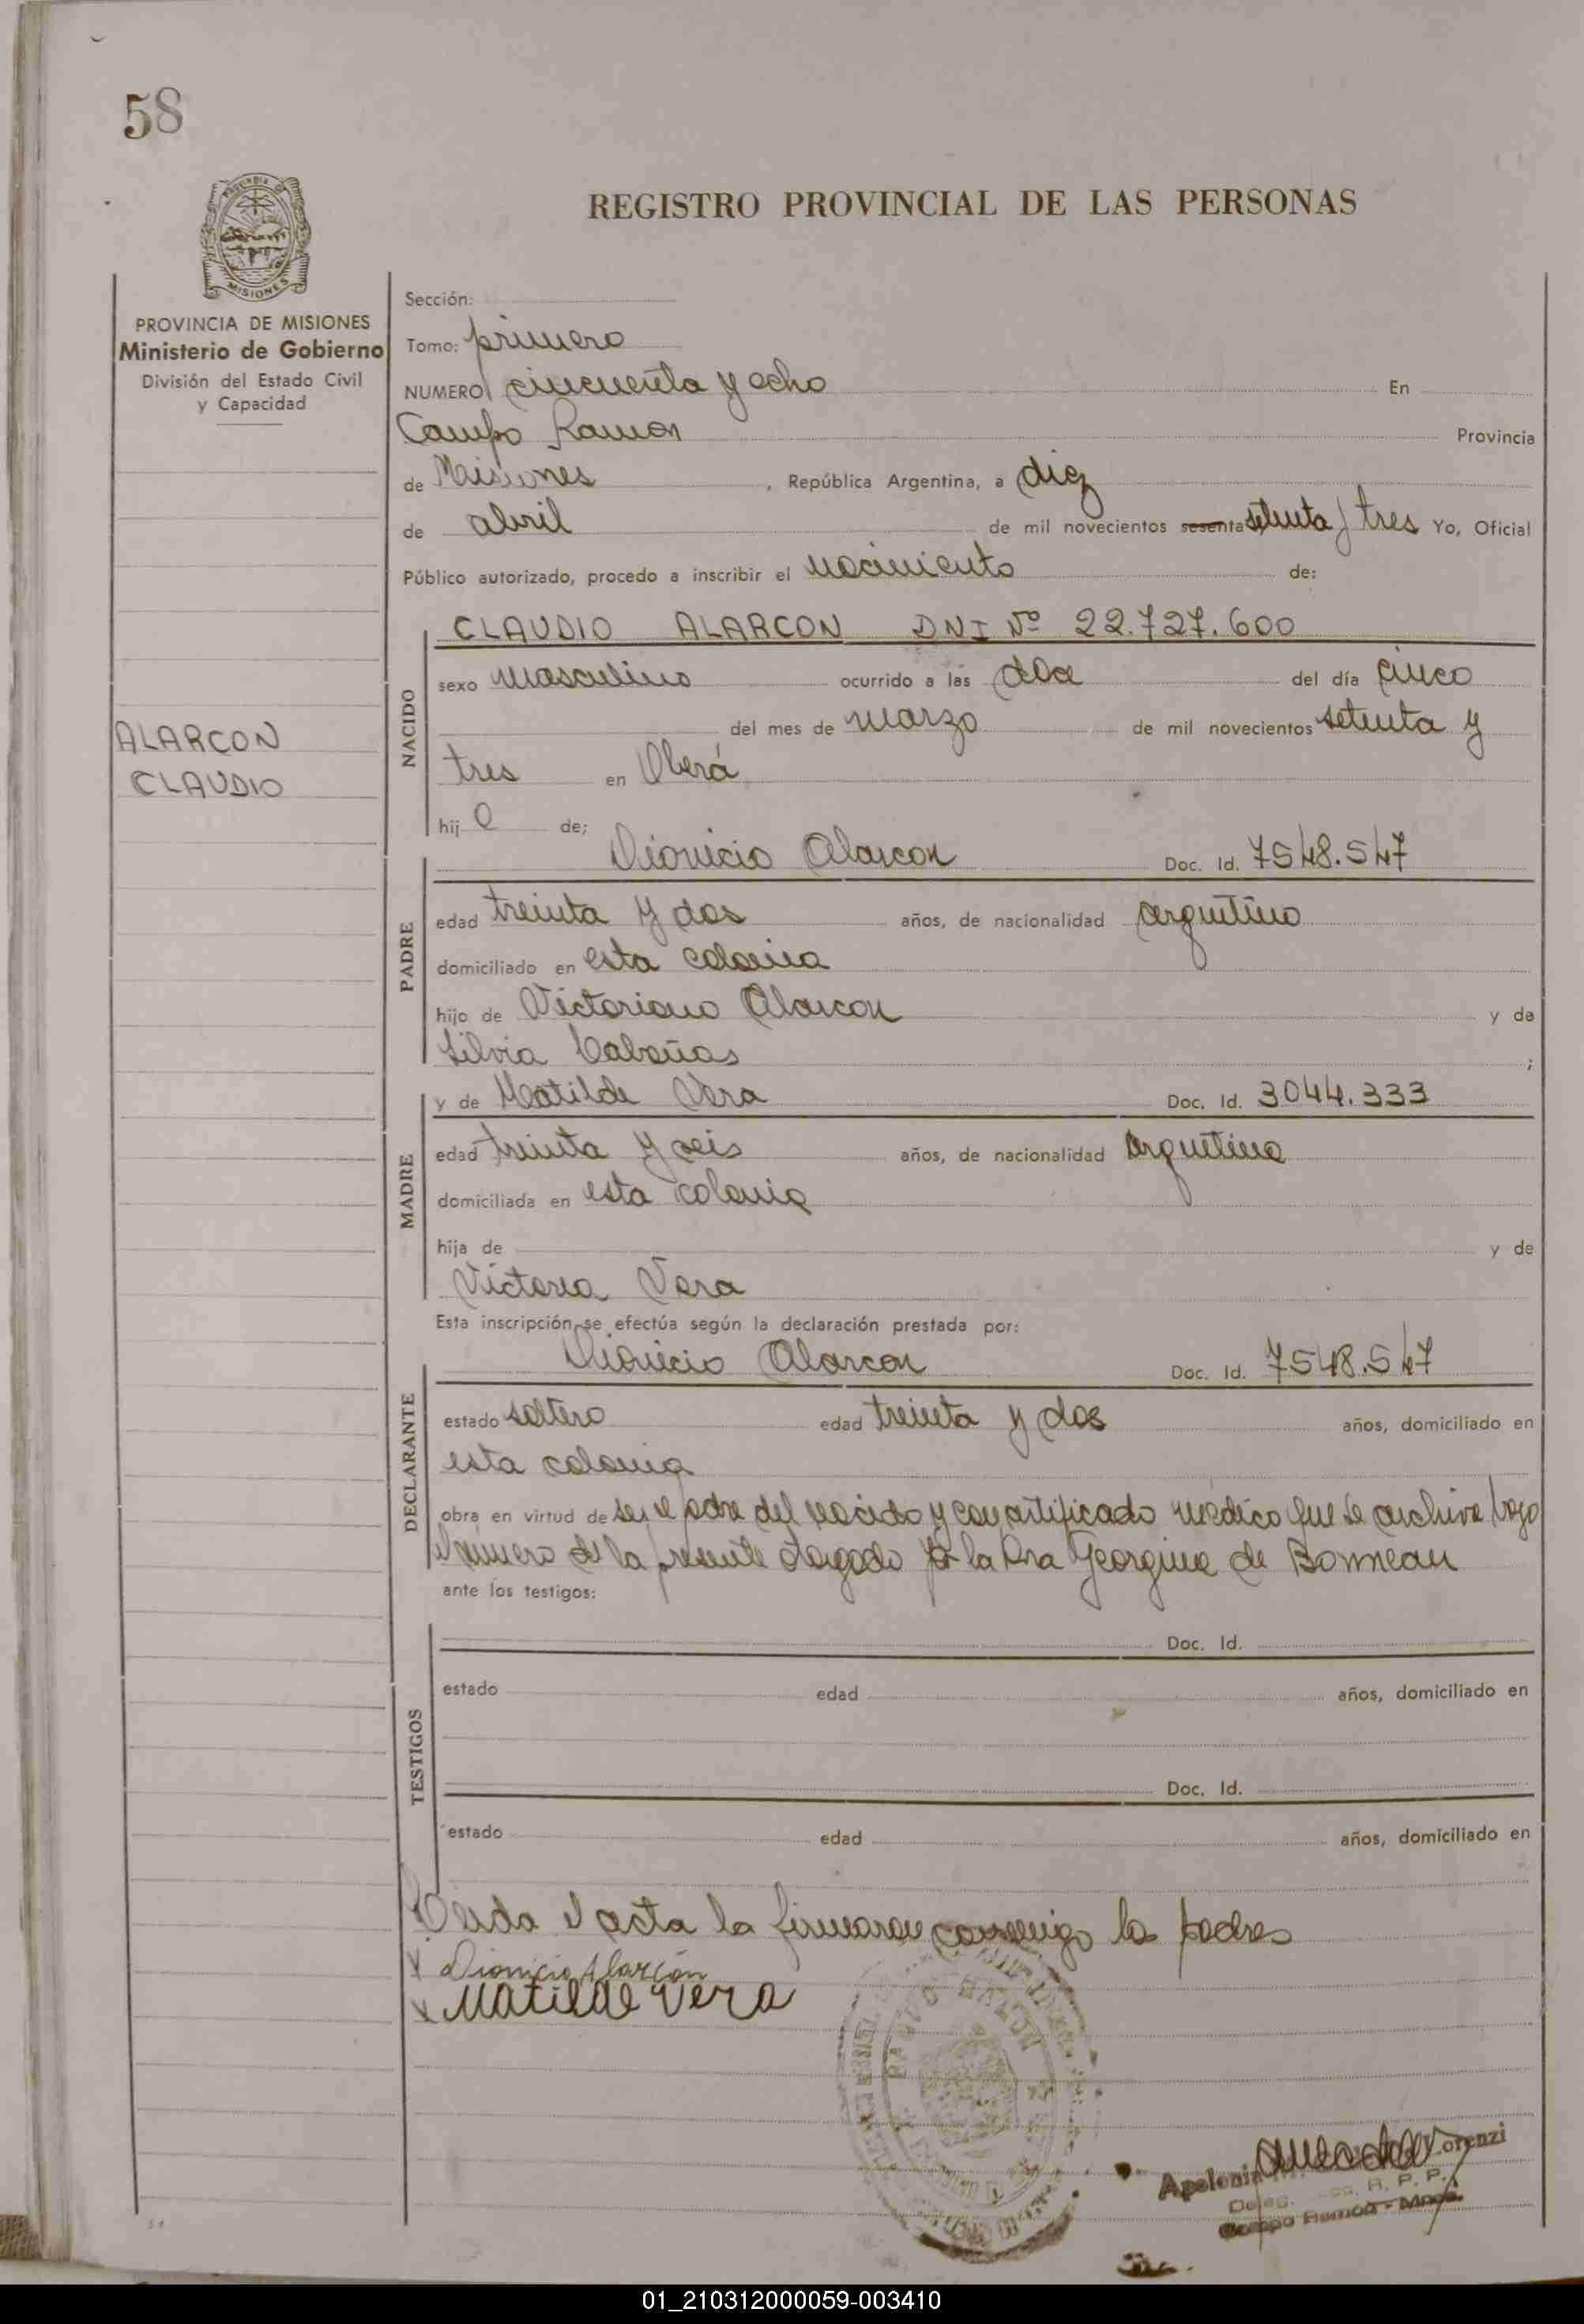 58
PROVINCIA DE
MISIONES
REGISTRO PROVINCIAL DE LAS PERSONAS
PROVINCIA DE MISIONES
Ministerio de Gobierno
División del Estado Civil
y Capacidad
ALARCON
CLAUDIO
Sección:
Tomo: primero
NUMERO cincuenta y ocho En
Campo Ramon Provincia
de Misiones , República Argentina, a diez
de abril de mil novecientos sesenta setenta y tres Yo, Oficial
Público autorizado, procedo a inscribir el nacimiento de:
CLAUDIO ALARCON DNI Nº 22.727.600
NACIDO
sexo masculino ocurrido a las doce del día cinco
del mes de marzo de mil novecientos setenta y
tres en Oberá
hij o de;
PADRE
Dionicio Alarcon Doc. Id. 7548.547
edad treinta y dos años, de nacionalidad argentino
domiciliado en esta colonia
hijo de Victoriano Alarcon y de
Silvia Cabañas ;
MADRE
y de Matilde Vera Doc. Id. 3044.333
edad treinta y seis años, de nacionalidad argentina
domiciliada en esta colonia
hija de y de
Victoria Vera
Esta inscripción se efectúa según la declaración prestada por:
DECLARANTE
Dionicio Alarcon Doc. Id. 7548.547
estado soltero edad treinta y dos años, domiciliado en
esta colonia
obra en virtud de ser el padre del nacido y con certificado medico que se archiva bajo
el número de la presente otorgado por la Dra Georgina de Bonneau
ante los testigos:
TESTIGOS
Doc. Id.
estado edad años, domiciliado en
Doc. Id.
estado edad años, domiciliado en
Leida el acta la firmaron conmigo los padres
x Dionicio Alarcón
x Matilde Vera
CAMPO RAMON
Apolonia Lorenzi
Deleg. R. P. P.
Campo Ramón - Mnes.
01_210312000059-003410